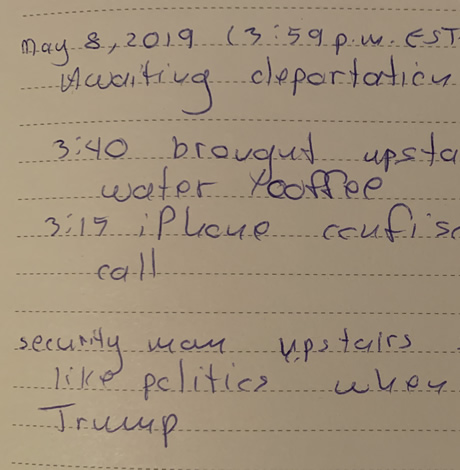 May 8, 2019 (3:59 p.m. EST
Awaiting deportation
3:40 brought upsta
water
3:15 iPhone confisc
call
security man upstairs
like politics when
Trump